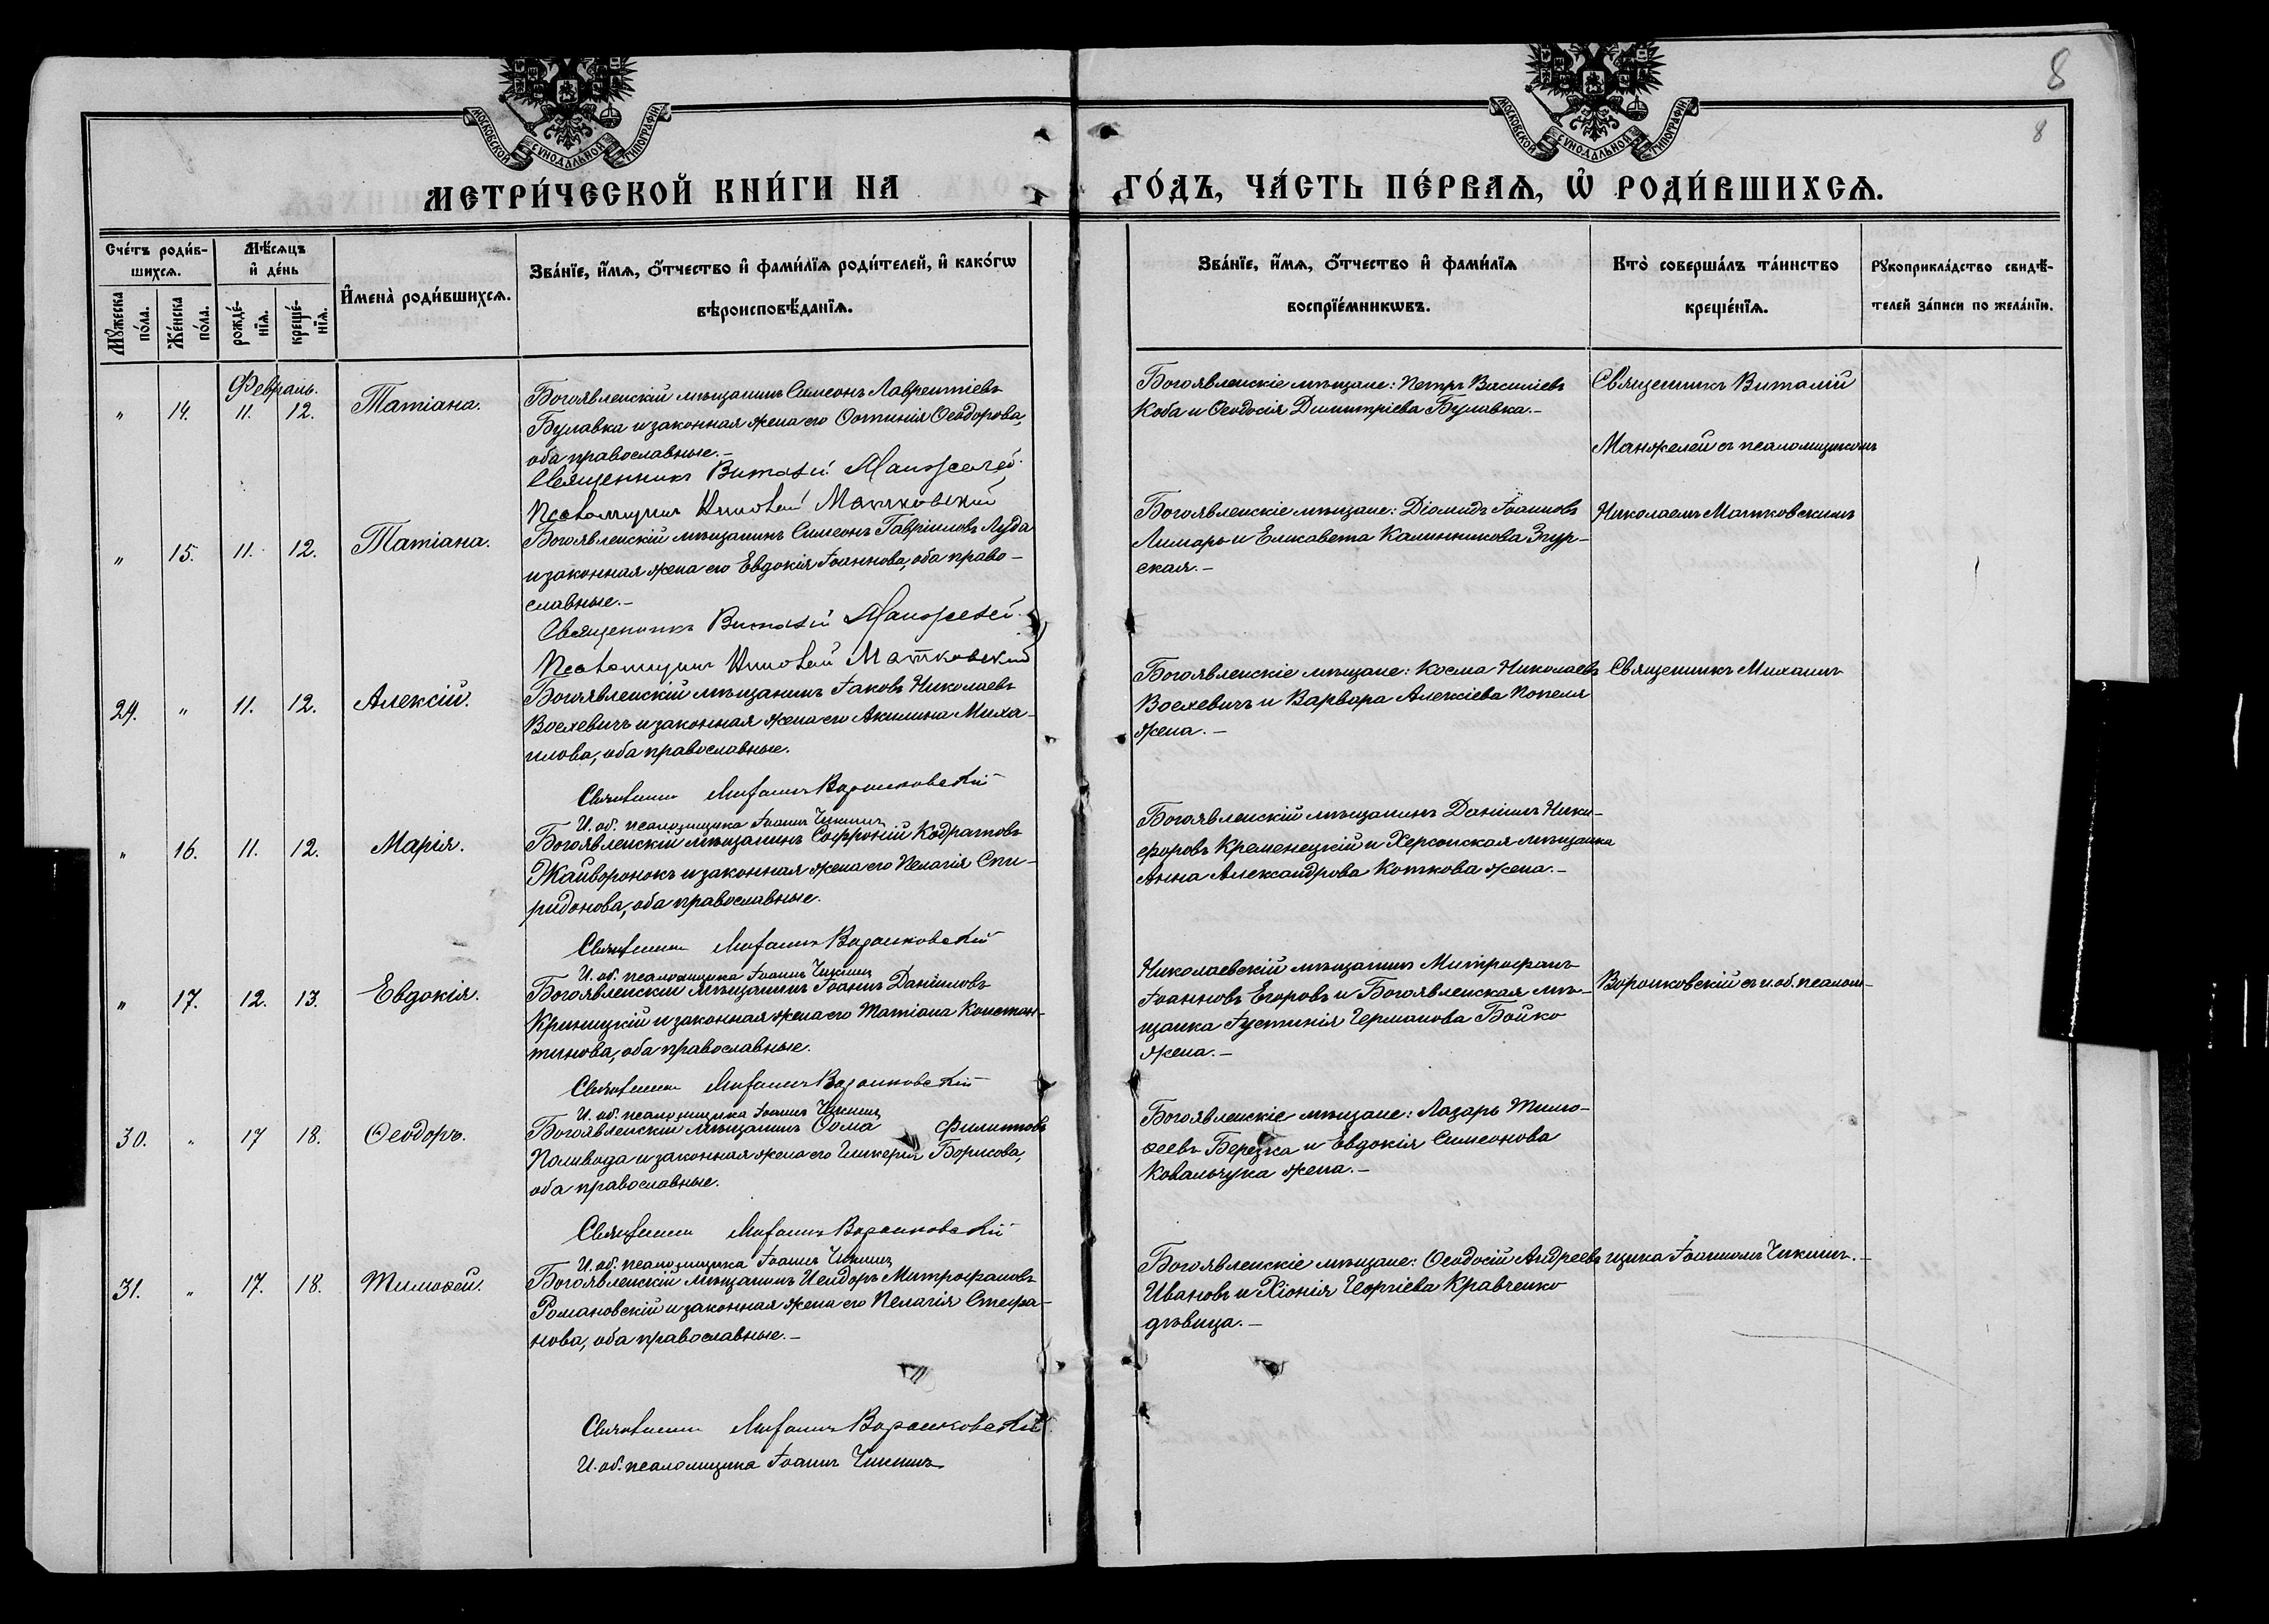 8
8
МОСКОВСКОЙ СѴНОДАЛЬНОЙ ТИПОГРАФІИ
МОСКОВСКОЙ СѴНОДАЛЬНОЙ ТИПОГРАФІИ
МЕТРИ́ЧЕСКОЙ КНИ́ГИ НА
ГО́ДЪ, ЧА́СТЬ ПЕ́РВАѦ, Ѡ҆ РОДИ́ВШИХСѦ.
Сче́тъ роди́в-
шихсѧ.
Мꙋ́жеска по́ла.
Же́нска по́ла.
Мѣ́сѧцъ
и҆ де́нь
рожде́-
нїѧ.
креще́-
нїѧ.
И҆мена̀ роди́вшихсѧ.
Зва́нїе, и҆́мѧ, ѻ҆́тчество и҆ фами́лїѧ роди́телей, и҆ како́гѡ
вѣроисповѣ́данїѧ.
Зва́нїе, и҆́мѧ, ѻ҆́тчество и҆ фами́лїѧ
воспрїе́мникѡвъ.
Кто̀ соверша́лъ та́инство
креще́нїѧ.
Рꙋкоприкла́дство свидѣ́-
телей за́писи по жела́нїю.
Февраль.
" 14. 11. 12. Татіана.
Богоявленскій мѣщанинъ Симеонъ Лаврентіевъ
Булавка и законная жена его Фотинія Ѳеодорова,
оба православные.-
Священникъ Виталій Манжелей.
Псаломщикъ Николай Матковскій
Богоявленскіе мѣщане: Петръ Василіевъ
Коба и Ѳеодосія Димитріева Булавка.-
Священникъ Виталій
Манжелей съ псаломщикомъ
" 15. 11. 12. Татіана.
Богоявленскій мѣщанинъ Симеонъ Гавріиловъ Луда
и законная жена его Евдокія Іоаннова, оба право-
славные.-
Священникъ Виталій Манжелей.
Псаломщикъ Николай Матковскій
Богоявленскіе мѣщане: Діомидъ Іоанновъ
Лимарь и Елисавета Калинникова Згур-
ская.-
Николаемъ Матковскимъ
29. " 11. 12. Алексій.
Богоявленскій мѣщанинъ Іаковъ Николаевъ
Восхевичъ и законная жена его Акилина Миха-
илова, оба православные.
Священникъ Михаилъ Ворошковскій
И. об. псаломщика Іоаннъ Чикинъ
Богоявленскіе мѣщане: Косма Николаевъ
Восхевичъ и Варвара Алексіева Попеля
жена.-
Священникъ Михаилъ
" 16. 11. 12. Марія.
Богоявленскій мѣщанинъ Софроній Кодратовъ
Жайворонокъ и законная жена его Пелагія Спи-
ридонова, оба православные.
Священникъ Михаилъ Ворошковскій
И. об. псаломщика Іоаннъ Чикинъ
Богоявленскій мѣщанинъ Даніилъ Ники-
форовъ Кременецкій и Херсонская мѣщанка
Анна Александрова Коткова жена.-
" 17. 12. 13. Евдокія.
Богоявленскій мѣщанинъ Іоаннъ Даніиловъ
Криницкій и законная жена его Татіана Констан-
тинова, оба православные.
Священникъ Михаилъ Ворошковскій
И. об. псаломщика Іоаннъ Чикинъ
Николаевскій мѣщанинъ Митрофанъ
Іоанновъ Егоровъ и Богоявленская мѣ-
щанка Іустинія Германова Бойко
жена.-
Ворошковскій съ и. об. псалом-
30. " 17 18. Ѳеодоръ.
Богоявленскій мѣщанинъ Ѳома Филипповъ
Поливода и законная жена его Гликерія Борисова,
оба православные.
Священникъ Михаилъ Ворошковскій
И. об. псаломщика Іоаннъ Чикинъ
Богоявленскіе мѣщане: Лазарь Тимо-
ѳеевъ Березка и Евдокія Симеонова
Ковальчука жена.-
31. " 17. 18. Тимоѳей.
Богоявленскій мѣщанинъ Исидоръ Митрофановъ
Романовскій и законная жена его Пелагія Стефа-
нова, оба православные.-
Священникъ Михаилъ Ворошковскій
И. об. псаломщика Іоаннъ Чикинъ
Богоявленскіе мѣщане: Ѳеодосій Андреевъ
Ивановъ и Хіонія Георгіева Кравченко
дѣвица.-
щика Іоанномъ Чикинъ.-